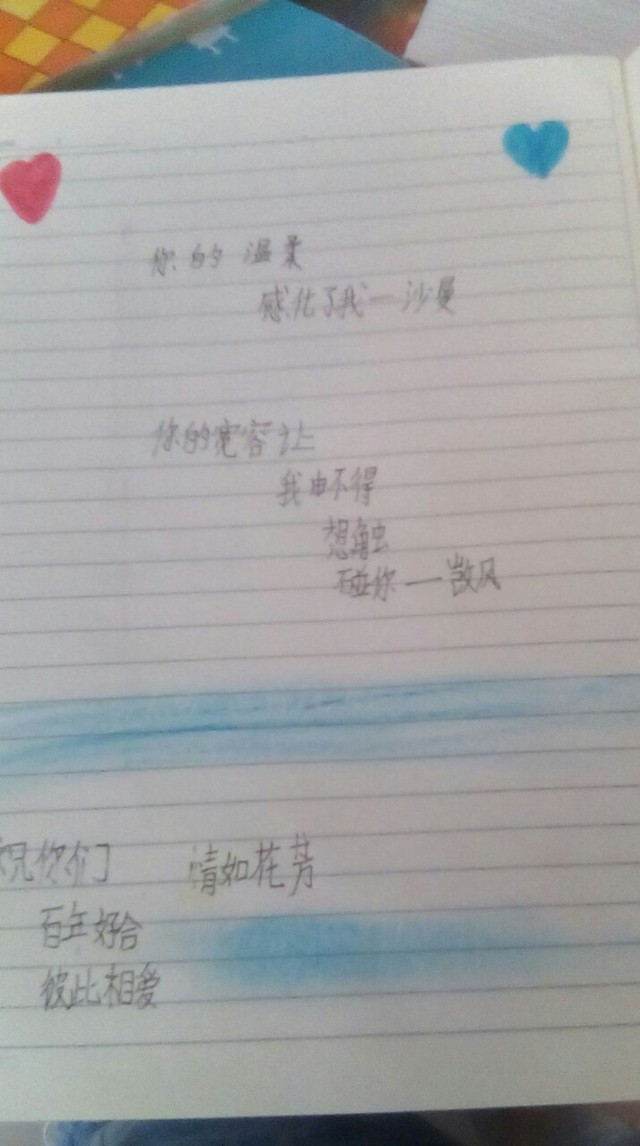 你的温柔
感化了我一沙曼
你的宽容让
我由不得
想触
碰你一散风
祝你们 情如花芳
百年好合
彼此相爱